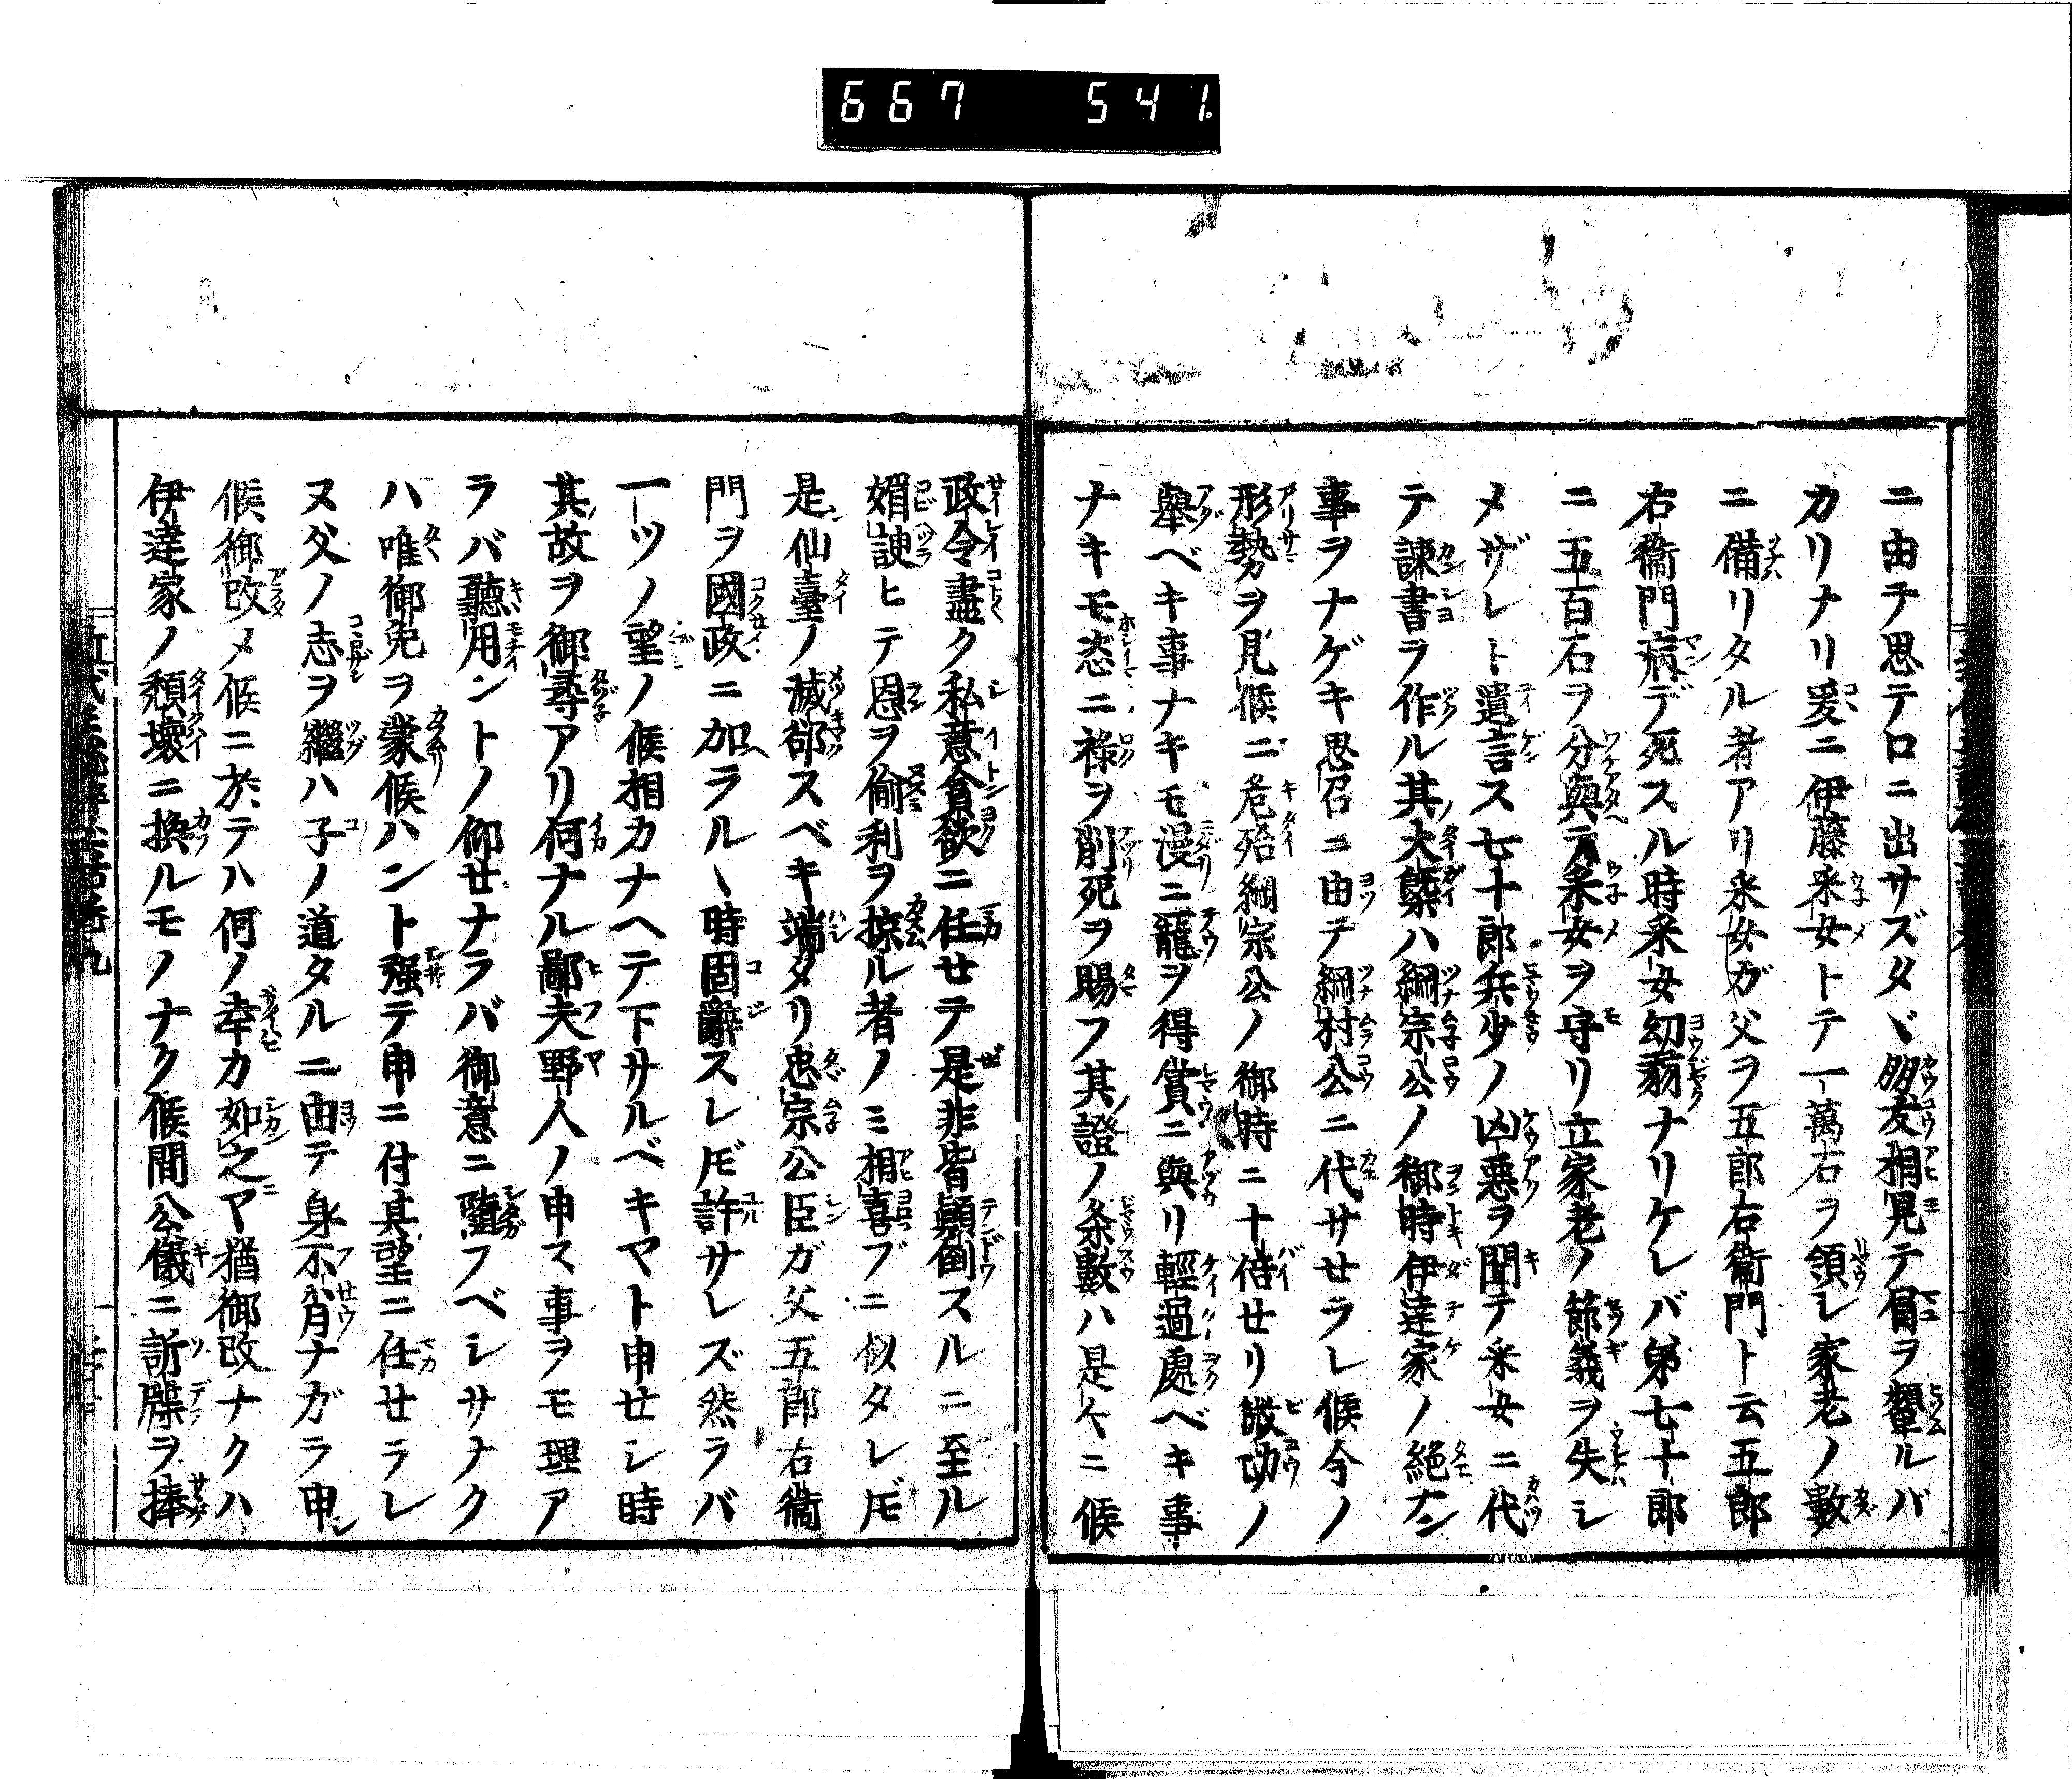 667 541.
ニ由テ思テロニ出サズタヾ朋友相見テ眉ヲ顰ルバ
カリナリ爰ニ伊藤采女トテ一萬石ヲ領シ家老ノ數
ニ備リタル者アリ采女ガ父ヲ五郎右衞門ト云五郎
右衞門病デ死スル時采女幼弱ナリケレバ弟七十郎
ニ五百石ヲ分與テ采女ヲ守リ立家老ノ節義ヲ失シ
メザレト遺言ス七十郎兵少ノ凶悪ヲ聞テ采女ニ代
テ諫書ラ作ル其大槩ハ綱宗公ノ御時伊達家ノ絶ナン
事ヲナゲキ思召ニ由テ綱村公ニ代サセラレ候今ノ
形勢ヲ見候ニ危殆綱宗公ノ御時ニ十倍セリ微功ノ
舉ベキ事ナキモ漫ニ寵ヲ得賞ニ與リ輕過處ベキ事
ナキモ恣ニ祿ヲ削死ヲ賜フ其證ノ条數ハ是ケニ候
政令盡ク私意貪欲ニ任セテ是非皆顛倒スルニ至ル
媚諛ヒテ恩ヲ偷利ヲ掠ル者ノミ相喜ブニ似タレ𪜈
是仙臺ノ滅郤スベキ端タリ忠宗公臣ガ父五郎右衞
門ヲ國政ニ加ラルヽ時固辭スレ𪜈許サレズ然ラバ
一ツノ望ノ候相カナヘテ下サルベキヤト申せシ時
其故ヲ御尋アリ何ナル鄙夫野人ノ申ス事ヲモ理ア
ラバ聽用ントノ仰せナラバ御意ニ隨フベシサナク
ハ唯御免ヲ蒙候ハント强テ申ニ付其望ニ任せラレ
ヌ父ノ志ヲ繼ハ子ノ道タルニ由テ身不肖ナガラ申
候御改メ候ニ於テハ何ノ幸カ如之ヤ猶御改ナクハ
伊達家ノ頽壞ニ換ルモノナク候間公儀ニ訴牒ヲ捧